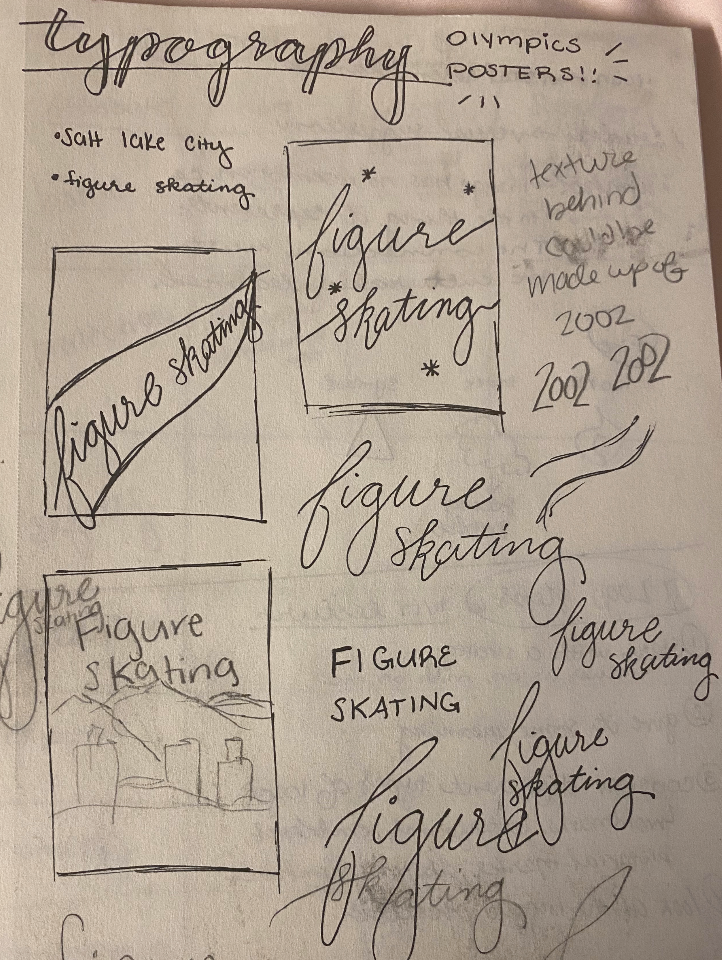 typography
OlYMPICS
POSTERS!!
•salt lake city
•figure skating
figure
skating
texture
behind
could be
made up of
2002
2002 2002
figure skating
figure
skating
figure
skating
Figure
skating
figure
skating
FIGURE
SKATING
figure
skating
figure
skating